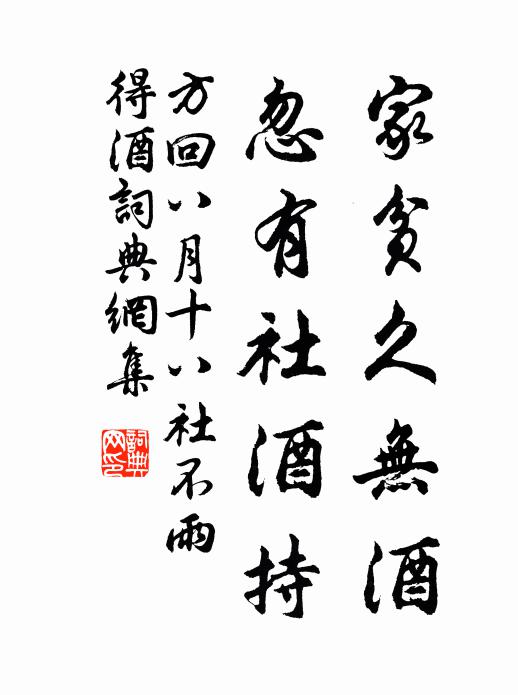 家貧久無酒
忽有社酒持
方回八月十八社不雨
得酒詞典網集
詞典網印